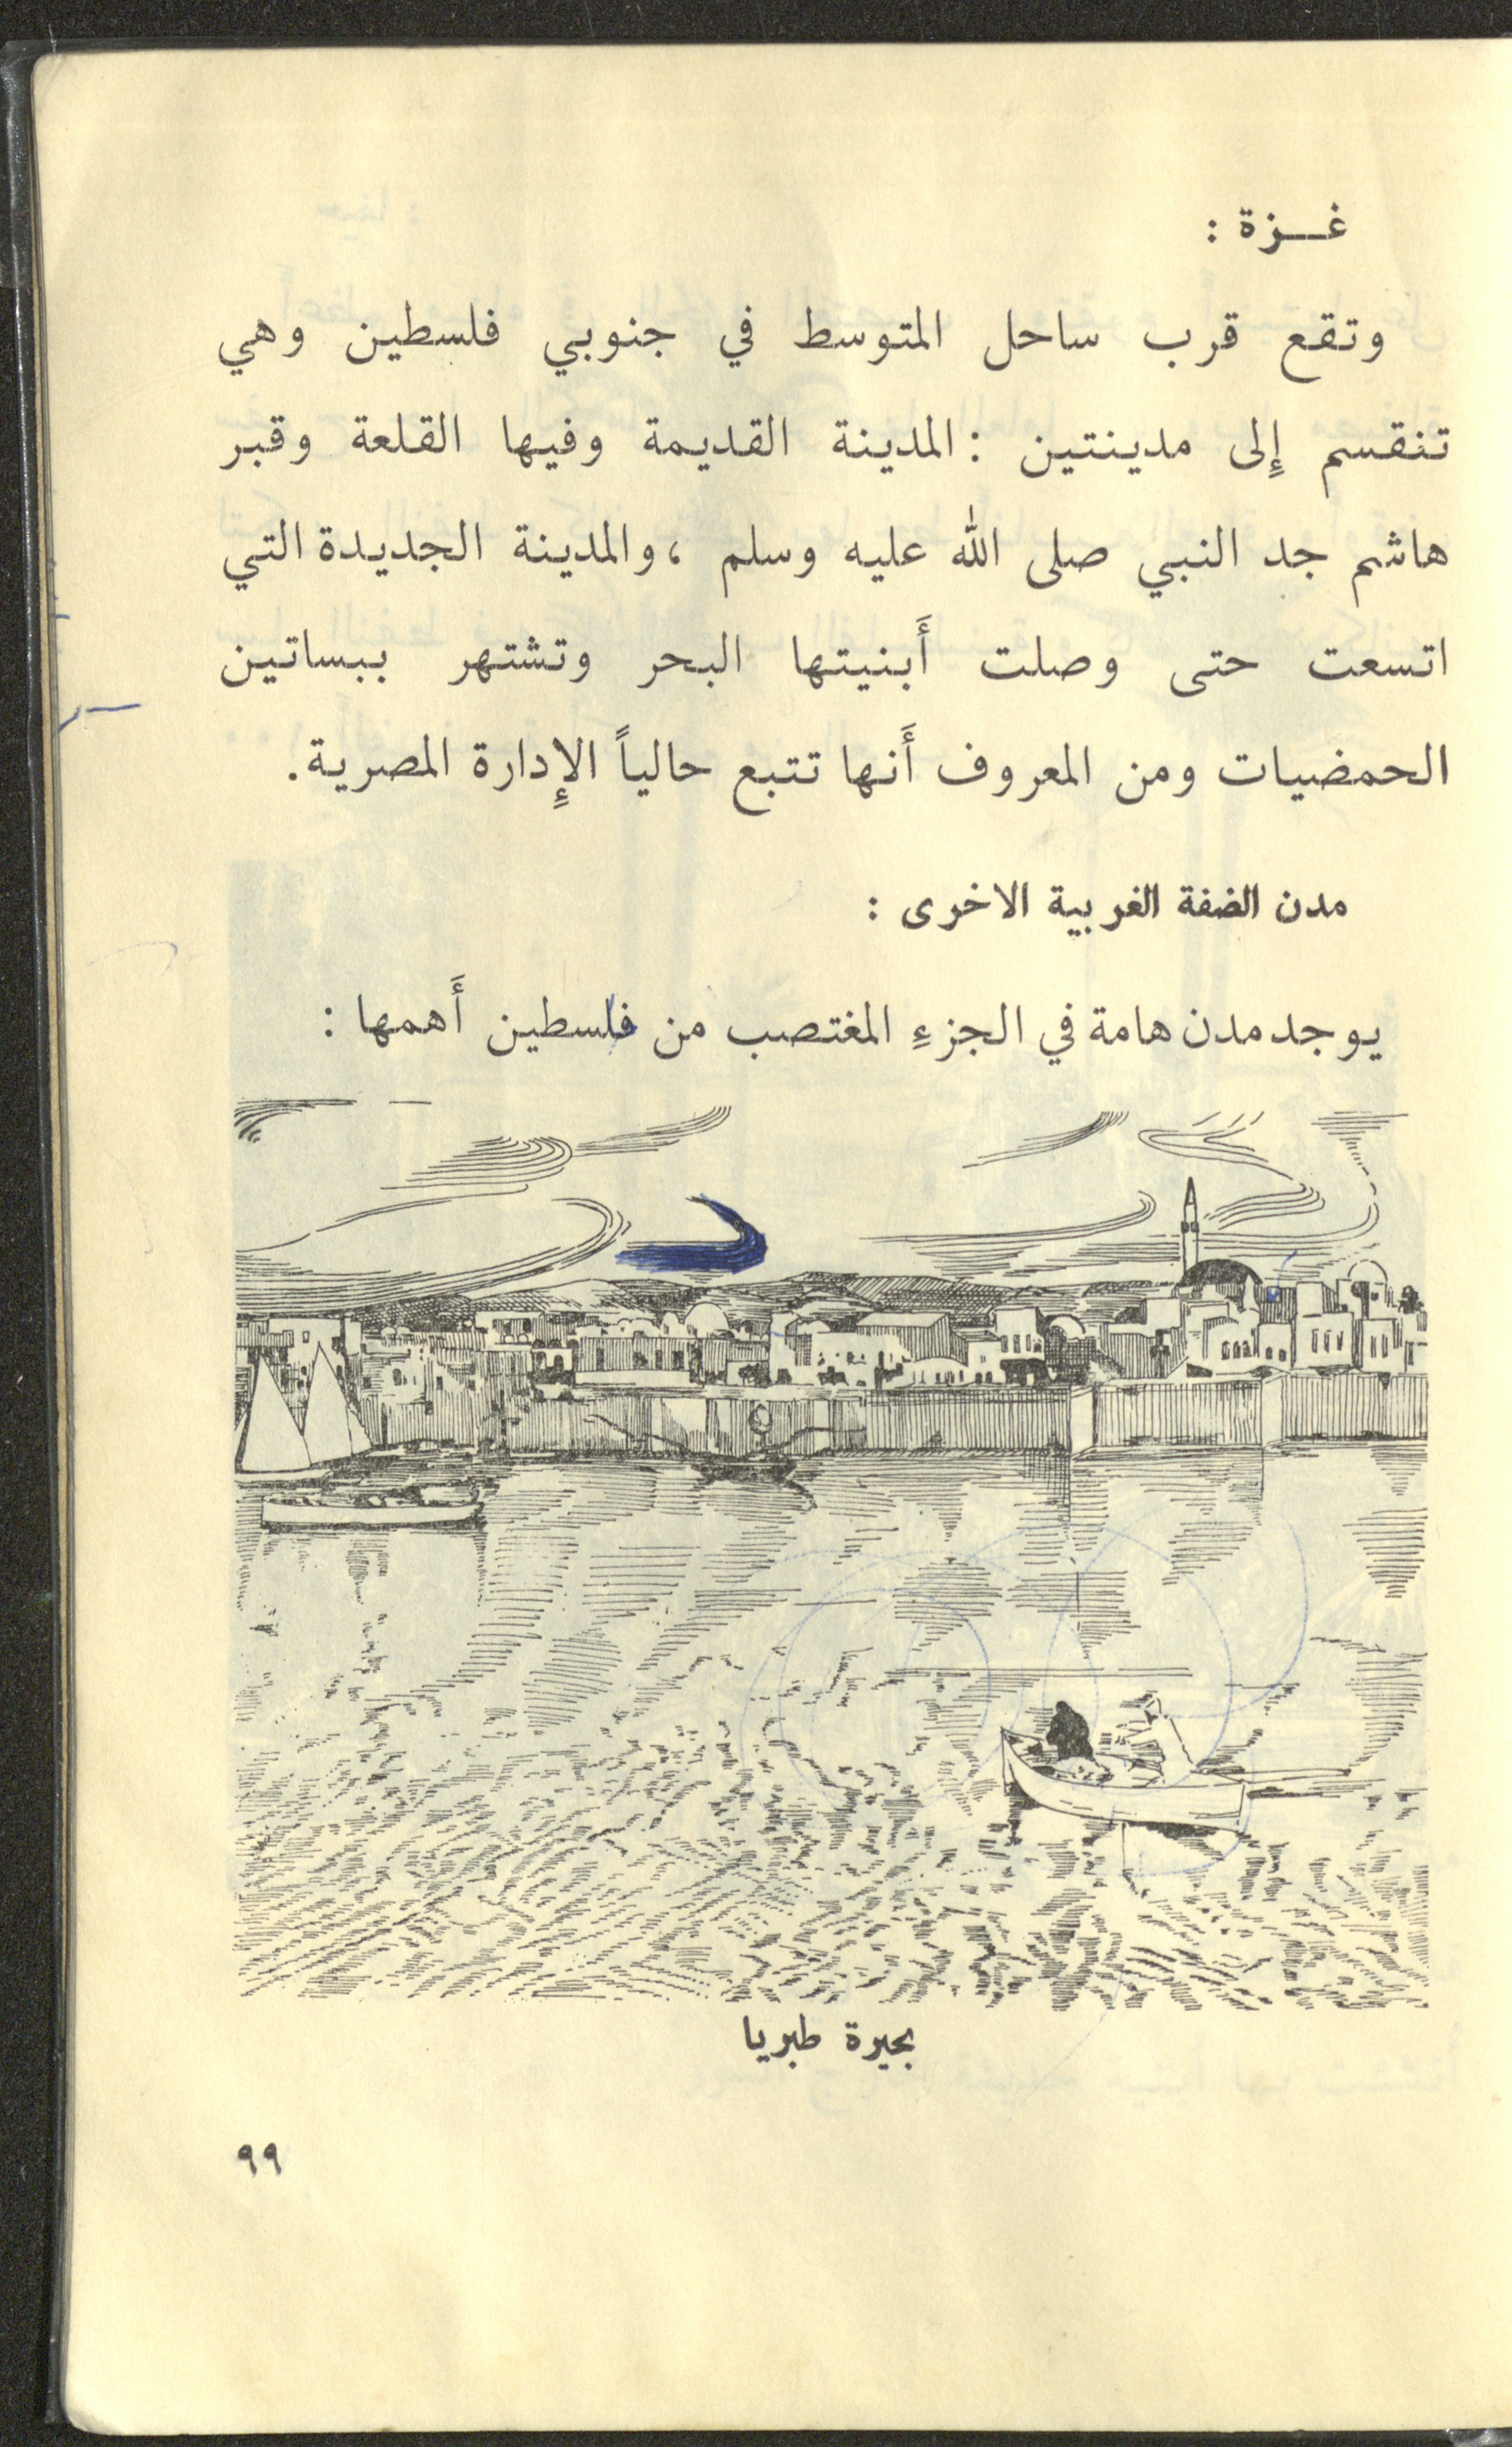 غـــزة :
وتقع قرب ساحل المتوسط في جنوبي فلسطين وهي
تنقسم إِلى مدينتين : المدينة القديمة وفيها القلعة وقبر
هاشم جد النبي صلى الله عليه وسلم ، والمدينة الجديدة التي
اتسعت حتى وصلت أَبنيتها البحر وتشتهر ببساتين
الحمضيات ومن المعروف أَنها تتبع حالياً الإِدارة المصرية.
مدن الضفة الغربية الاخرى :
يوجد مدن هامة في الجزءِ المغتصب من فلسطين أَهمها :
بحيرة طبريا
٩٩